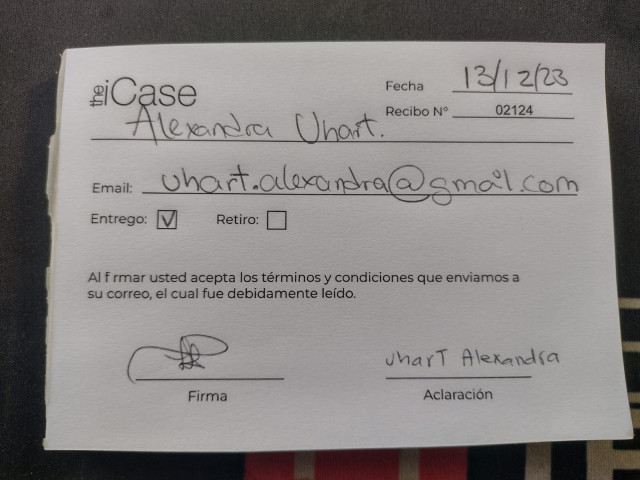 the iCase
Fecha 13/12/23
Recibo N° 02124
Alexandra Uhart.
Email: uhart.alexandra@gmail.com
Entrego: Retiro:
Al f rmar usted acepta los términos y condiciones que enviamos a
su correo, el cual fue debidamente leído.
uharT Alexandra
Firma Aclaración